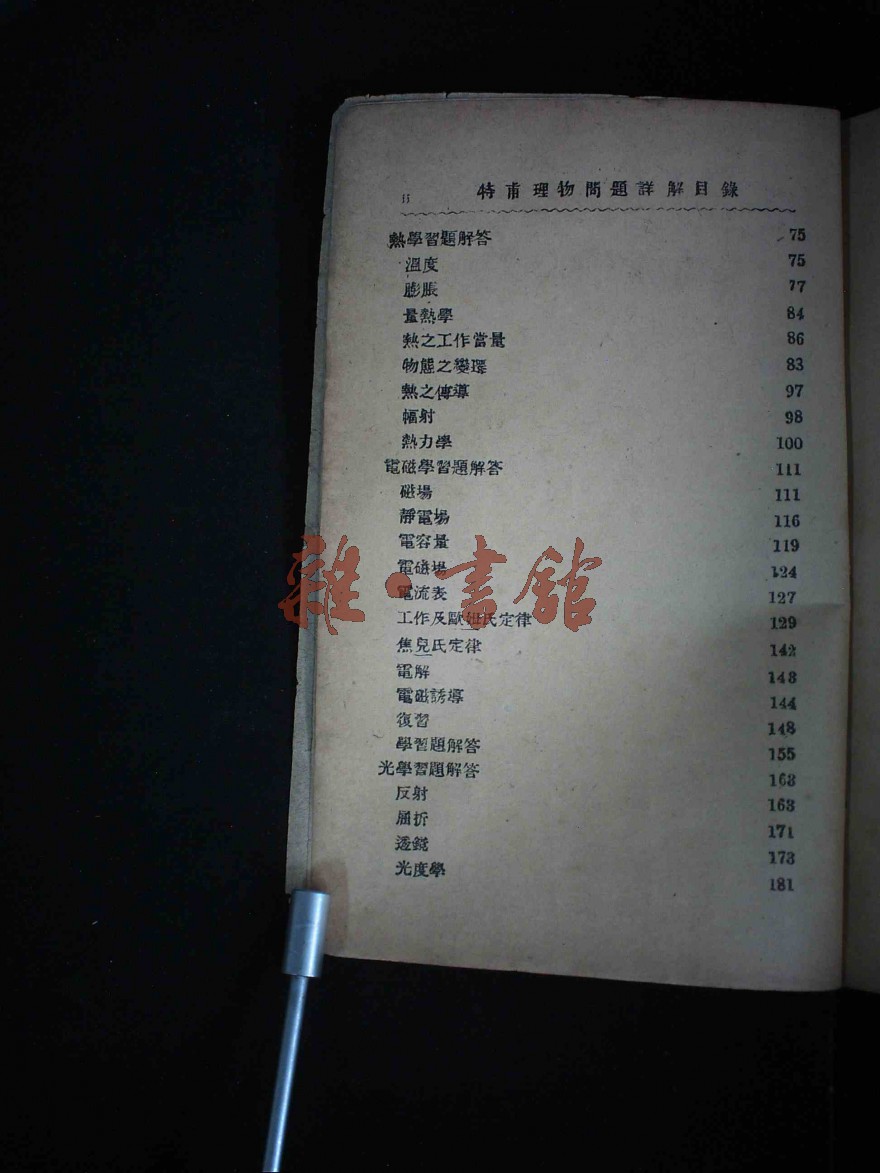 II 特甫理物問題詳解目錄
熱學習題解答 75
溫度 75
膨脹 77
量熱學 84
熱之工作當量 86
物態之變環 83
熱之傳導 97
幅射 98
熱力學 100
電磁學習題解答 111
磁場 111
靜電場 116
電容量 119
電磁場 124
電流表 127
工作及歐姆氏定律 129
焦兒氏定律 142
電解 143
電磁誘導 144
復習 148
學習題解答 155
光學習題解答 163
反射 163
屈折 171
透鏡 173
光度學 181
雜·書館